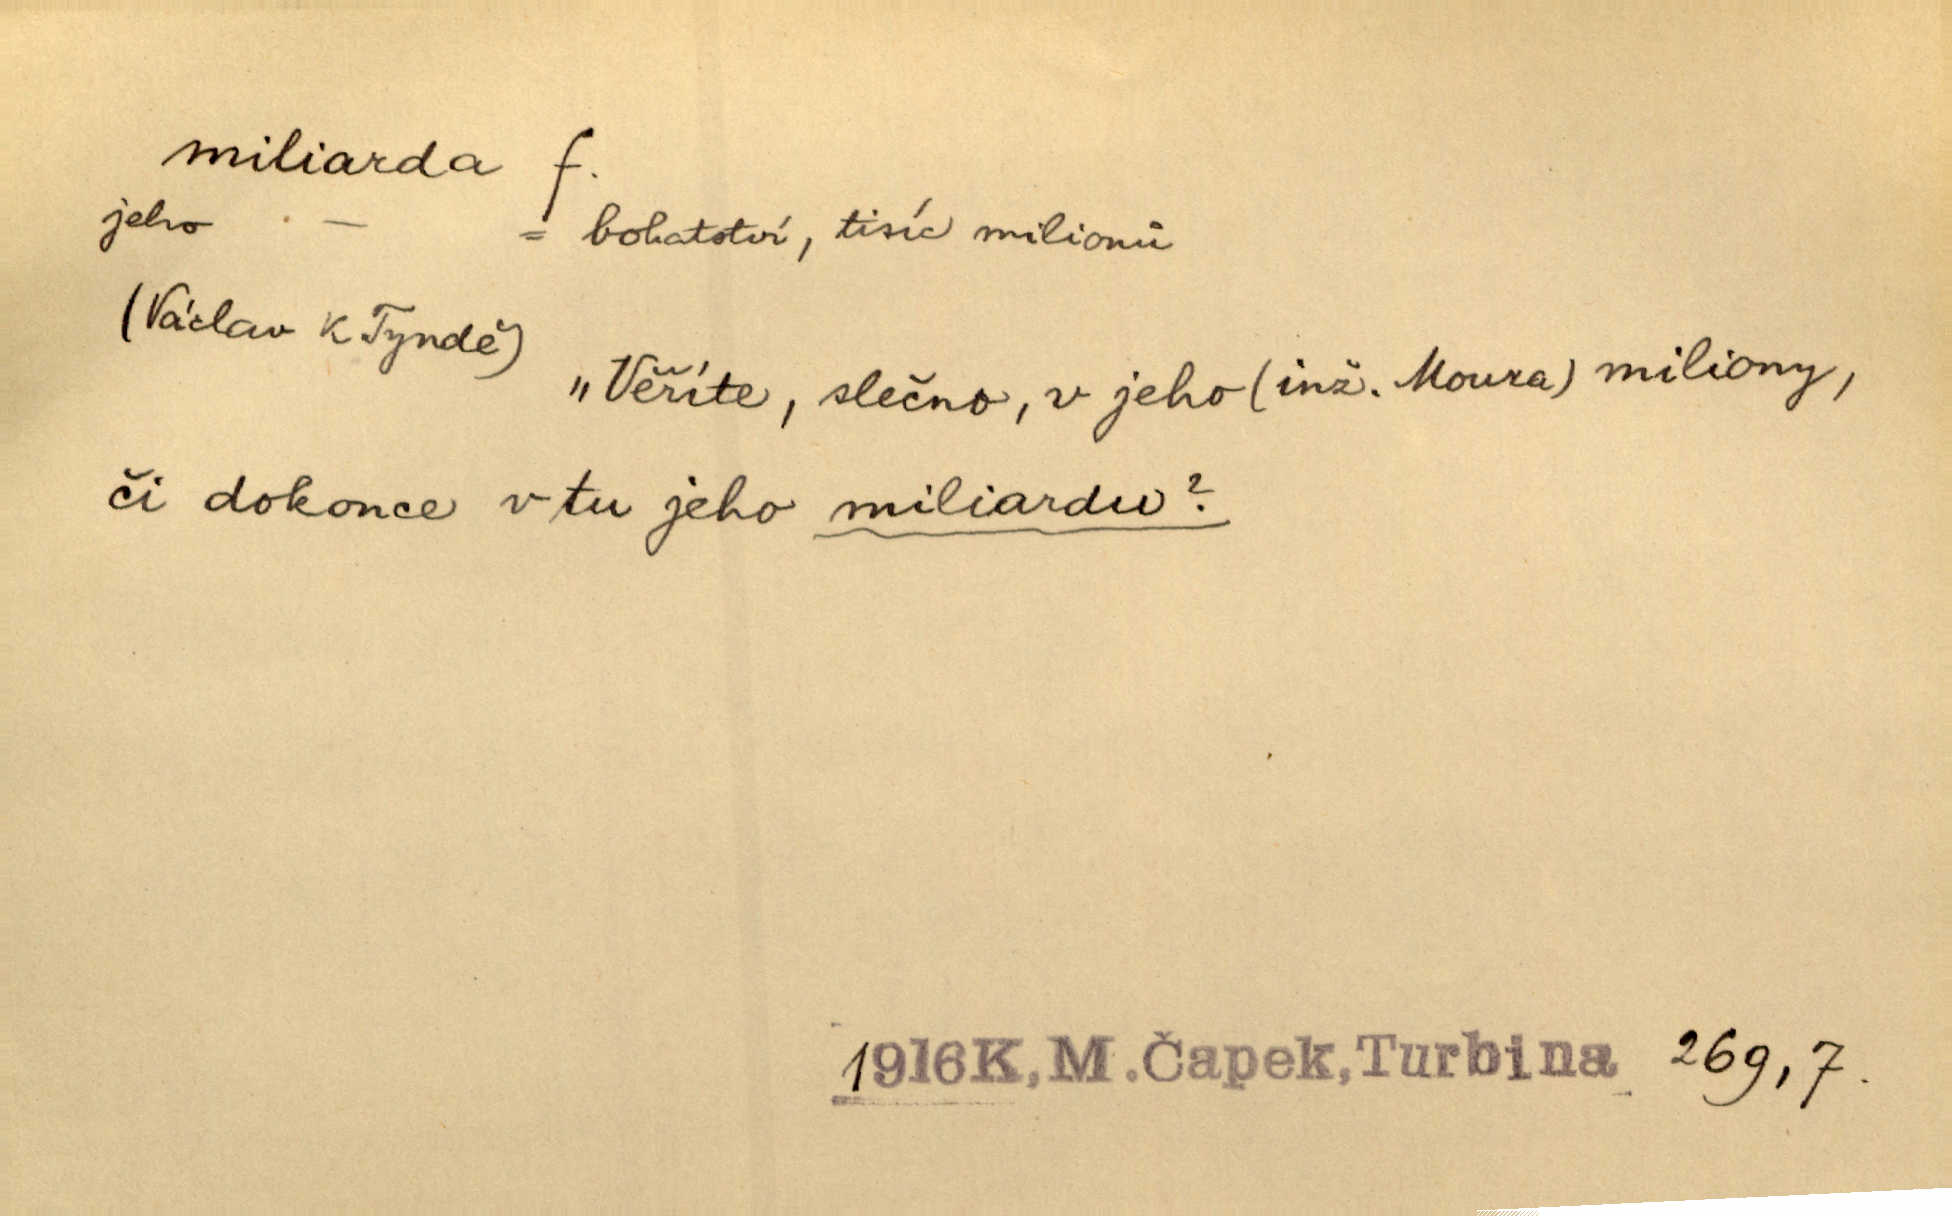 miliarda f.
jeho — = bohatství, tisíc milionů
(Václav k Tyndě)
„Věříte, slečno, v jeho (inž. Moura) miliony,
či dokonce v tu jeho miliardu?
1916K,M.Čapek,Turbina 269,7.